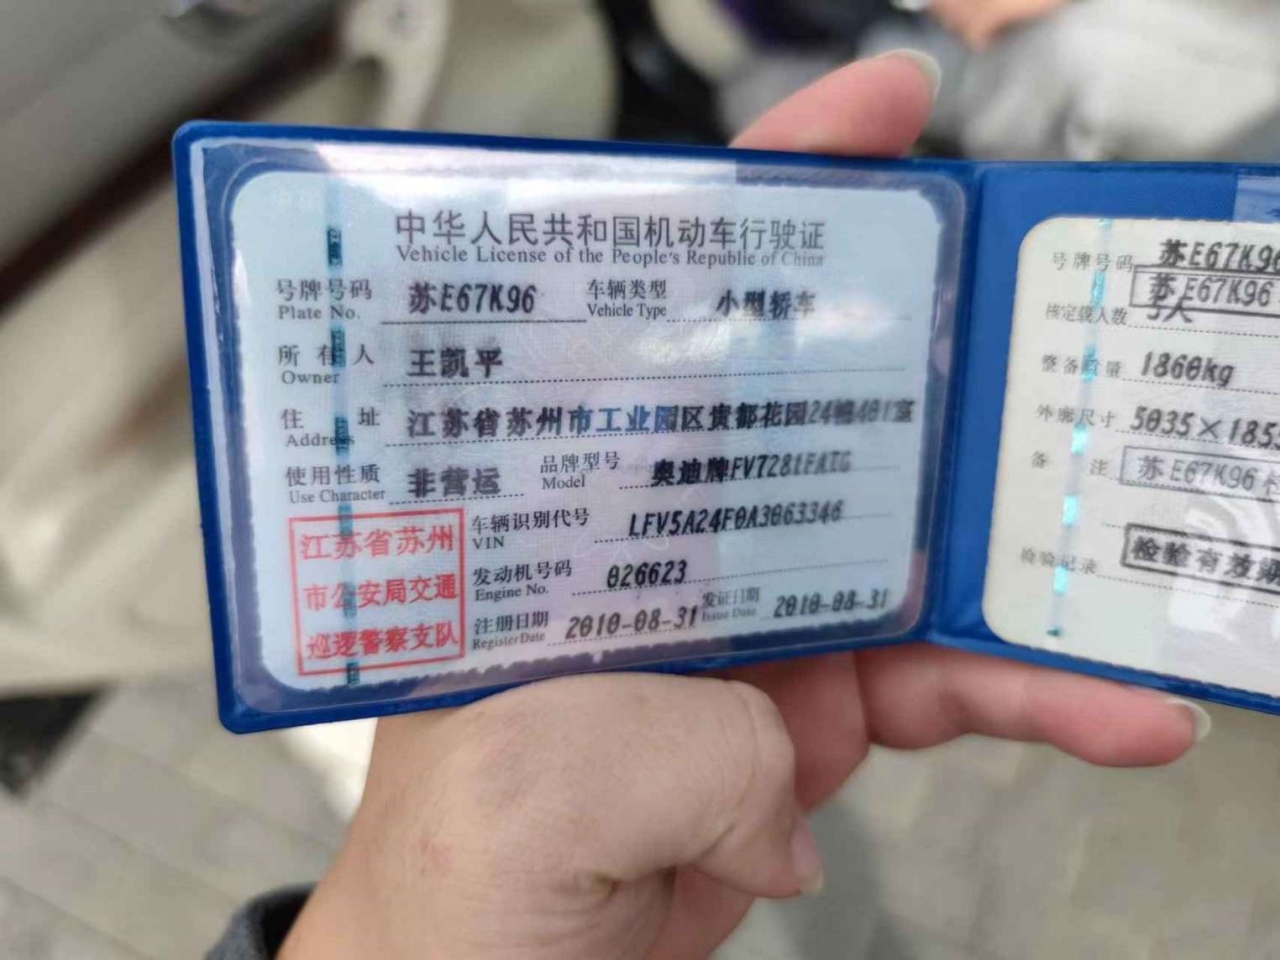 中华人民共和国机动车行驶证
Vehicle License of the People's Republic of China
号牌号码 苏E67K96 车辆类型 小型轿车
Plate No. Vehicle Type
所有人 王凯平
Owner
住址 江苏省苏州市工业园区贵都花园24幢401室
Address
使用性质 非营运 品牌型号 奥迪牌FV7281FATG
Use Character Model
江苏省苏州
市公安局交通
巡逻警察支队
车辆识别代号 LFV5A24F0A3063346
VIN
发动机号码 026623
Engine No.
注册日期 2010-08-31 发证日期 2010-08-31
Register Date Issue Date
号牌号码 苏E67K96
苏E67K96
核定载人数 5人
整备质量 1860kg
外廓尺寸 5035×185
备注 苏E67K96
检验记录 检验有效期